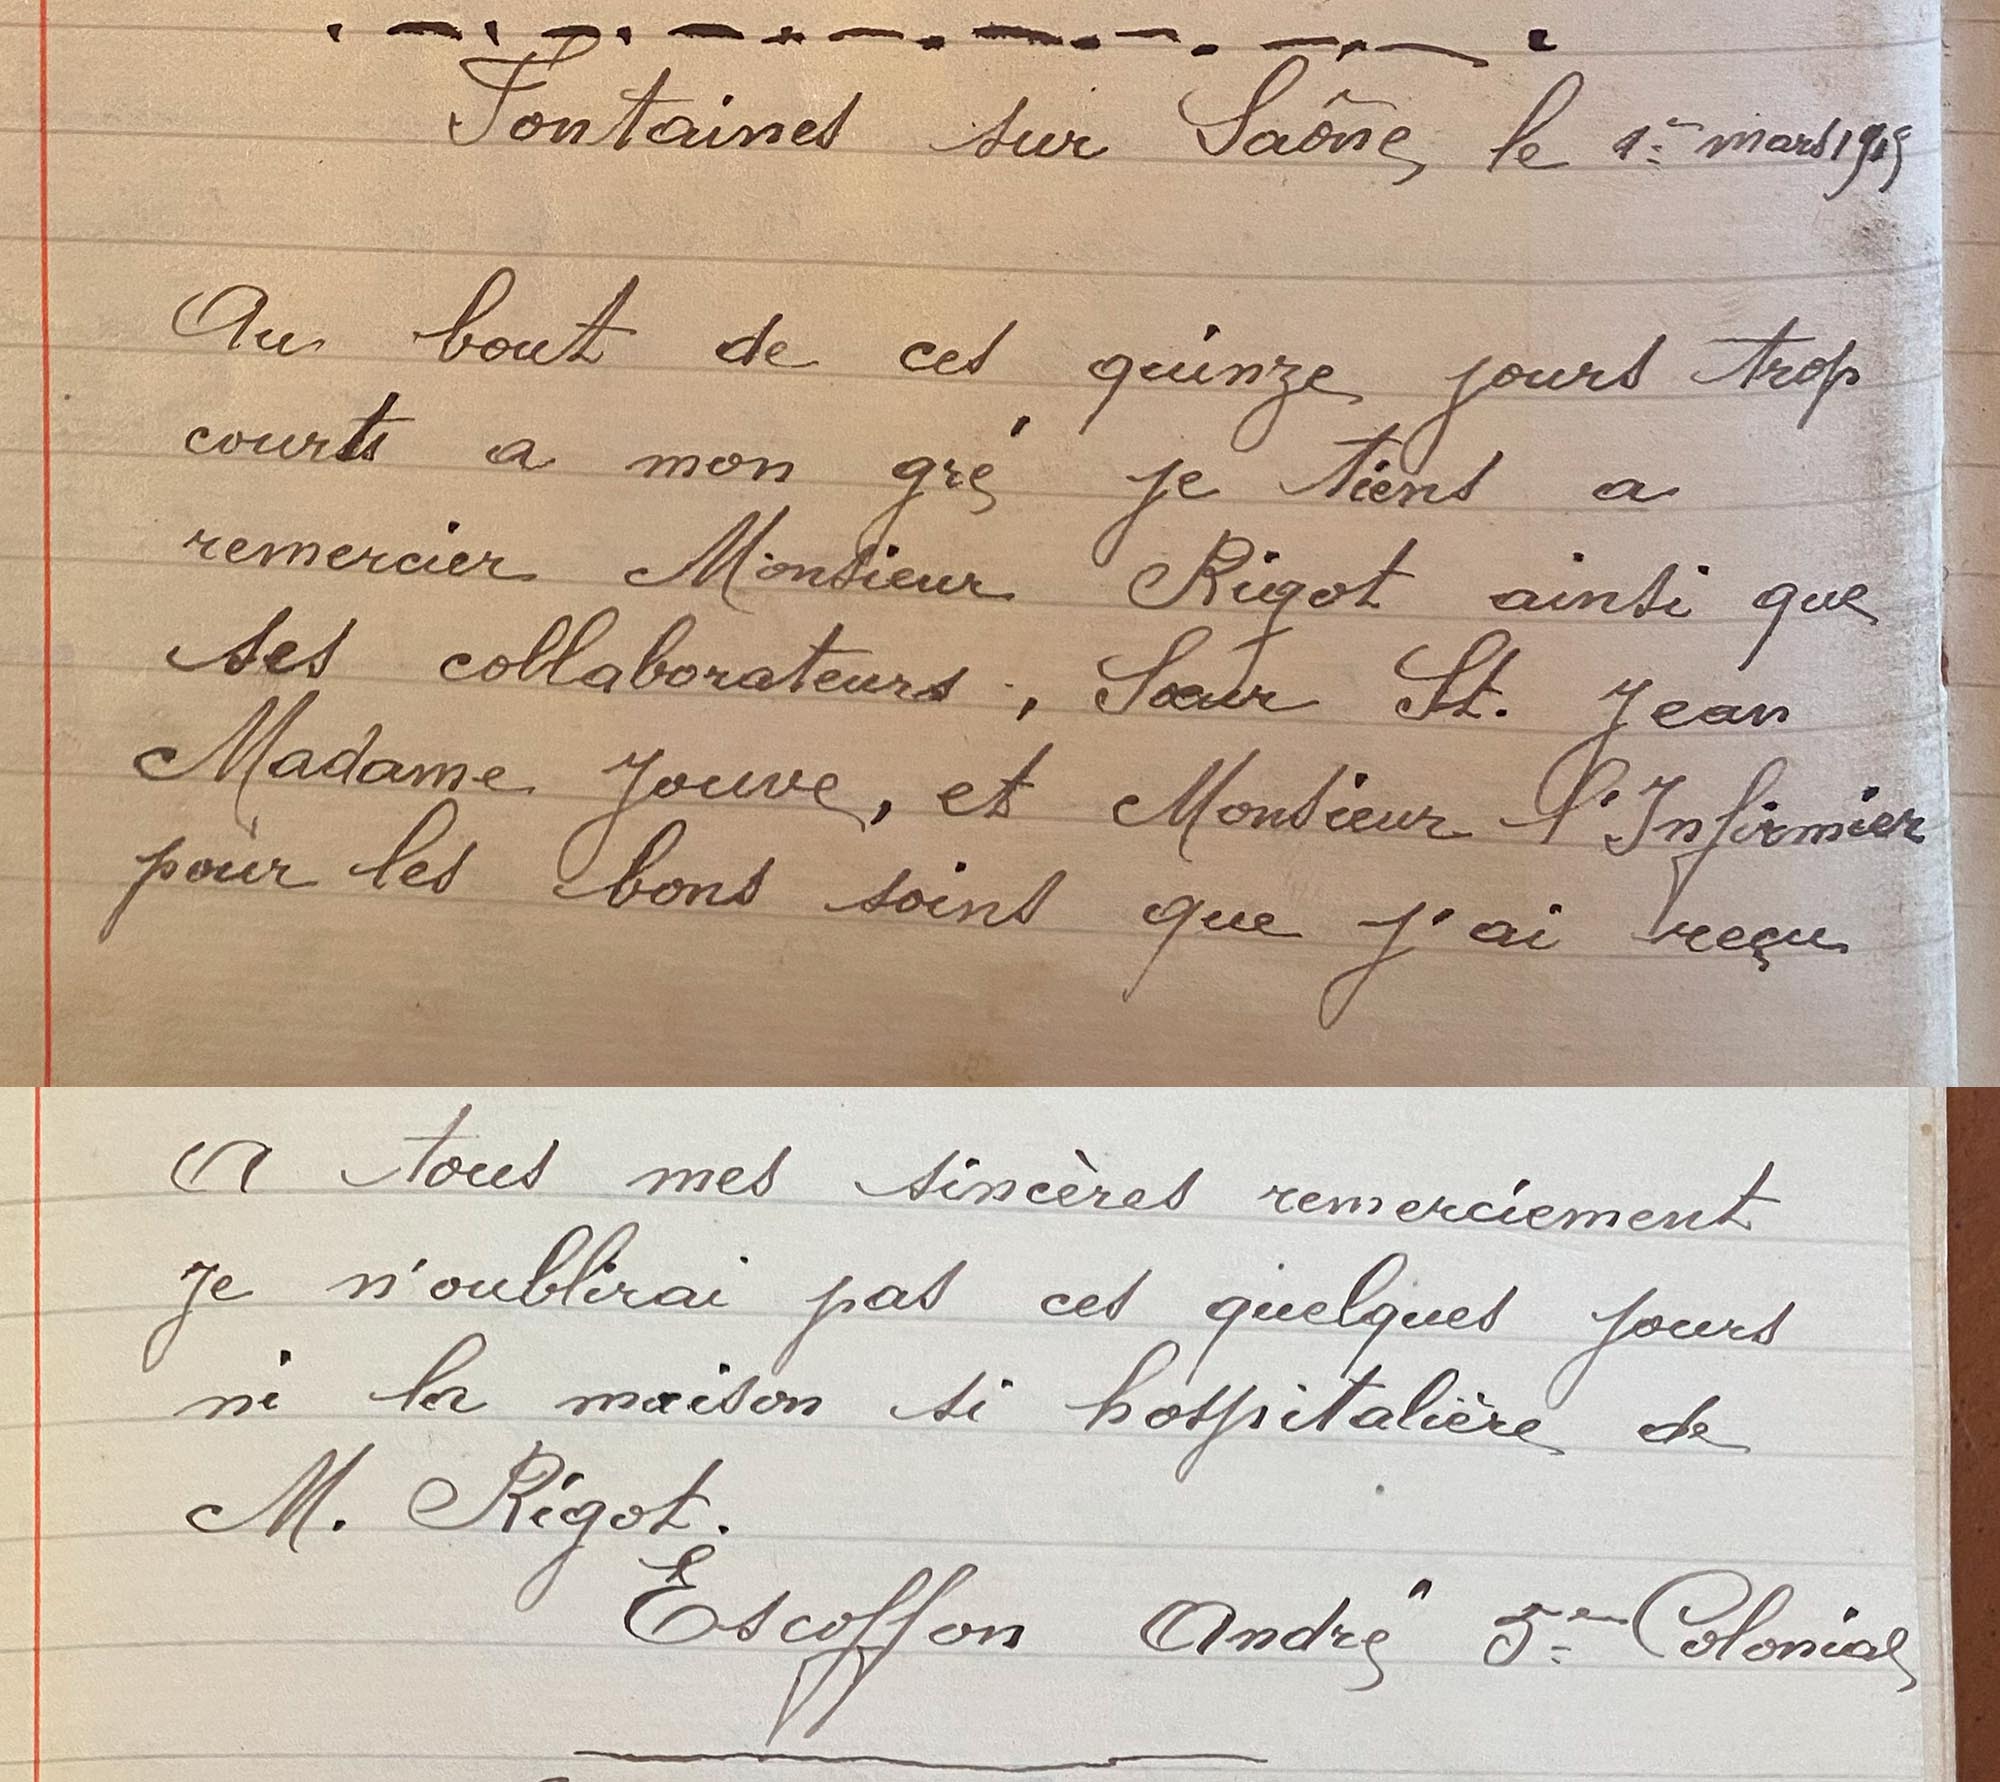 Fontaines sur Saône, le 1er mars 1915
Au bout de ces quinze jours trop
courts a mon gré je tiens a
remercier Monsieur Rigot ainsi que
ses collaborateurs, Sœur St. Jean
Madame Jouve, et Monsieur l'Infirmier
pour les bons soins que j'ai reçu
A tous mes sincères remerciement
Je n'oublirai pas ces quelques jours
ni la maison si hospitalière de
M. Rigot.
Escoffon André 5e Colonial